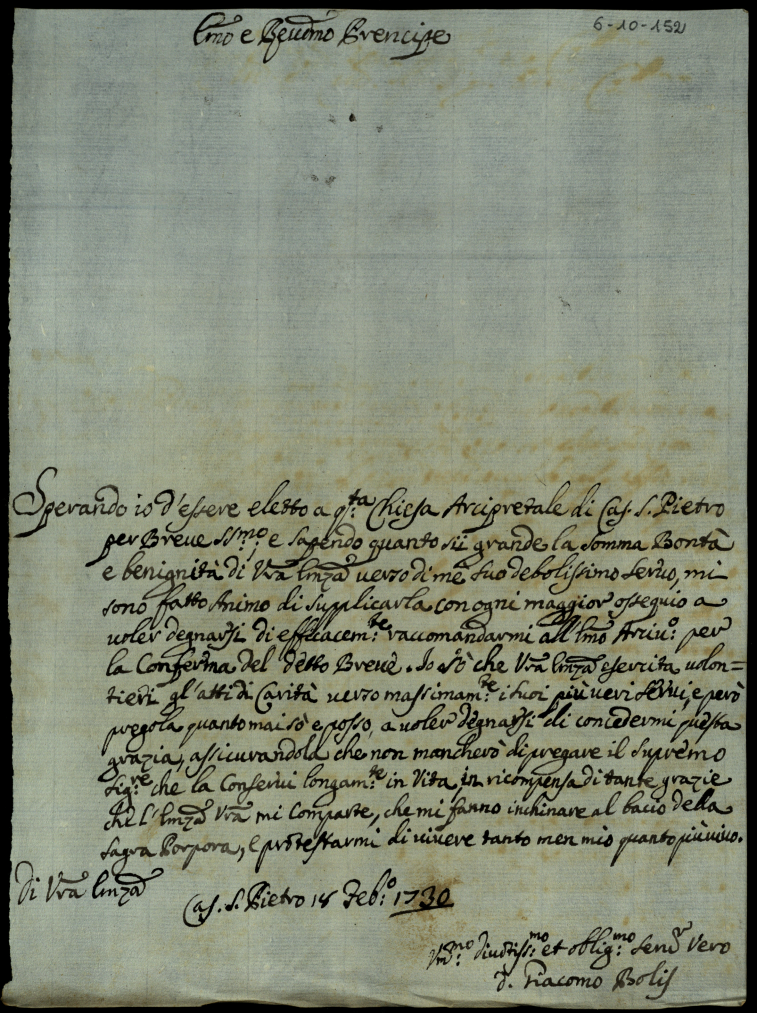 6-10-152
Emo e Revdmo Prencipe
Sperando io d'essere eletto a q.ta Chiesa Arcipretale di Cas. S. Pietro
per Breve SSmo, e sapendo quanto sii grande la somma Bontà
e benignità di Vra Emza verzo di me suo debolissimo servo, mi
sono fatto Animo di supplicarla con ogni maggior ossequio a
voler degnarsi di efficacem.te raccomandarmi all'Emo Arciv.o per
la Conferma del detto Breve. Io sò che Vra Emza esercita volon=
tieri gl'atti di Carità verzo massimam.te i suoi più veri servi, e però
pregola quanto mai sò e posso, a voler degnarsi di concedermi questa
grazia, assicurandola che non mancherò di pregare il supremo
Sig.re che la Conservi longam.te in Vita in ricompensa di tante grazie
che l'Emza Vra mi Comparte, che mi fanno inchinare al bacio della
Sagra Porpora, e protestarmi di vivere tanto men mio quanto più vivo.
Di Vra Emza
Cas. S. Pietro 18 Feb.o 1730
Vm.mo Divotiss.mo et oblig.mo Servr Vero
D. Giacomo Bolis